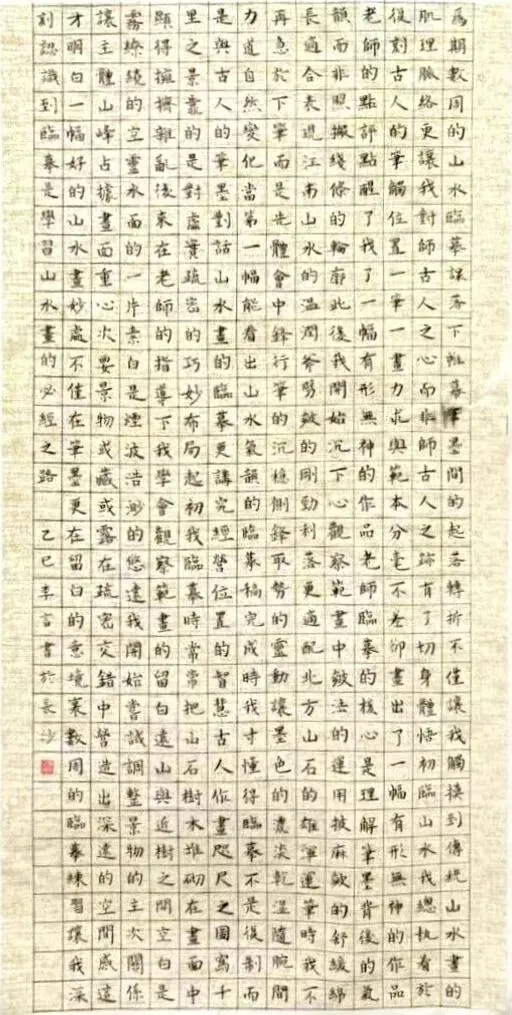 為期數周的山水臨摹課落下帷幕筆墨間的起落轉折不僅讓我觸摸到傳統山水畫的
肌理脈絡更讓我對師古人之心而非師古人之跡有了切身體悟初臨山水我總執着於
復刻古人的筆觸位置一筆一畫力求與範本分毫不差卻畫出了一幅有形無神的作品
老師的點評點醒了我了一幅有形無神的作品老師臨摹的核心是理解筆墨背後的氣
韻而非照搬綫條的輪廓此後我開始沉下心觀察範畫中皴法的運用披麻皴的舒緩綿
長適合表現江南山水的溫潤斧劈皴的剛勁利落更適配北方山石的雄渾運筆時我不
再急於下筆而是先體會中鋒行筆的沉穩側鋒取勢的靈動讓墨色的濃淡乾濕隨腕間
力道自然變化當第一幅能看出山水氣韻的臨摹稿完成時我才懂得臨摹不是復制而
是與古人的筆墨對話山水畫的臨摹更講究經營位置的智慧古人作畫咫尺之圖寫千
里之景靠的是對虛實疏密的巧妙布局起初我臨摹時常常把山石樹木堆砌在畫面中
顯得擁擠雜亂後來在老師的指導下我學會觀察範畫的留白遠山與近樹之間空白是
霧繚繞的空靈水面的一片素白是煙波浩渺的悠遠我開始嘗試調整景物的主次關係
讓主體山峰占據畫面重心次要景物或藏或露在疏密交錯中營造出深遠的空間感這
才明白一幅好的山水畫妙處不僅在筆墨更在留白的意境裏數周的臨摹練習讓我深
刻認識到臨摹是學習山水畫的必經之路 乙巳李言書於長沙